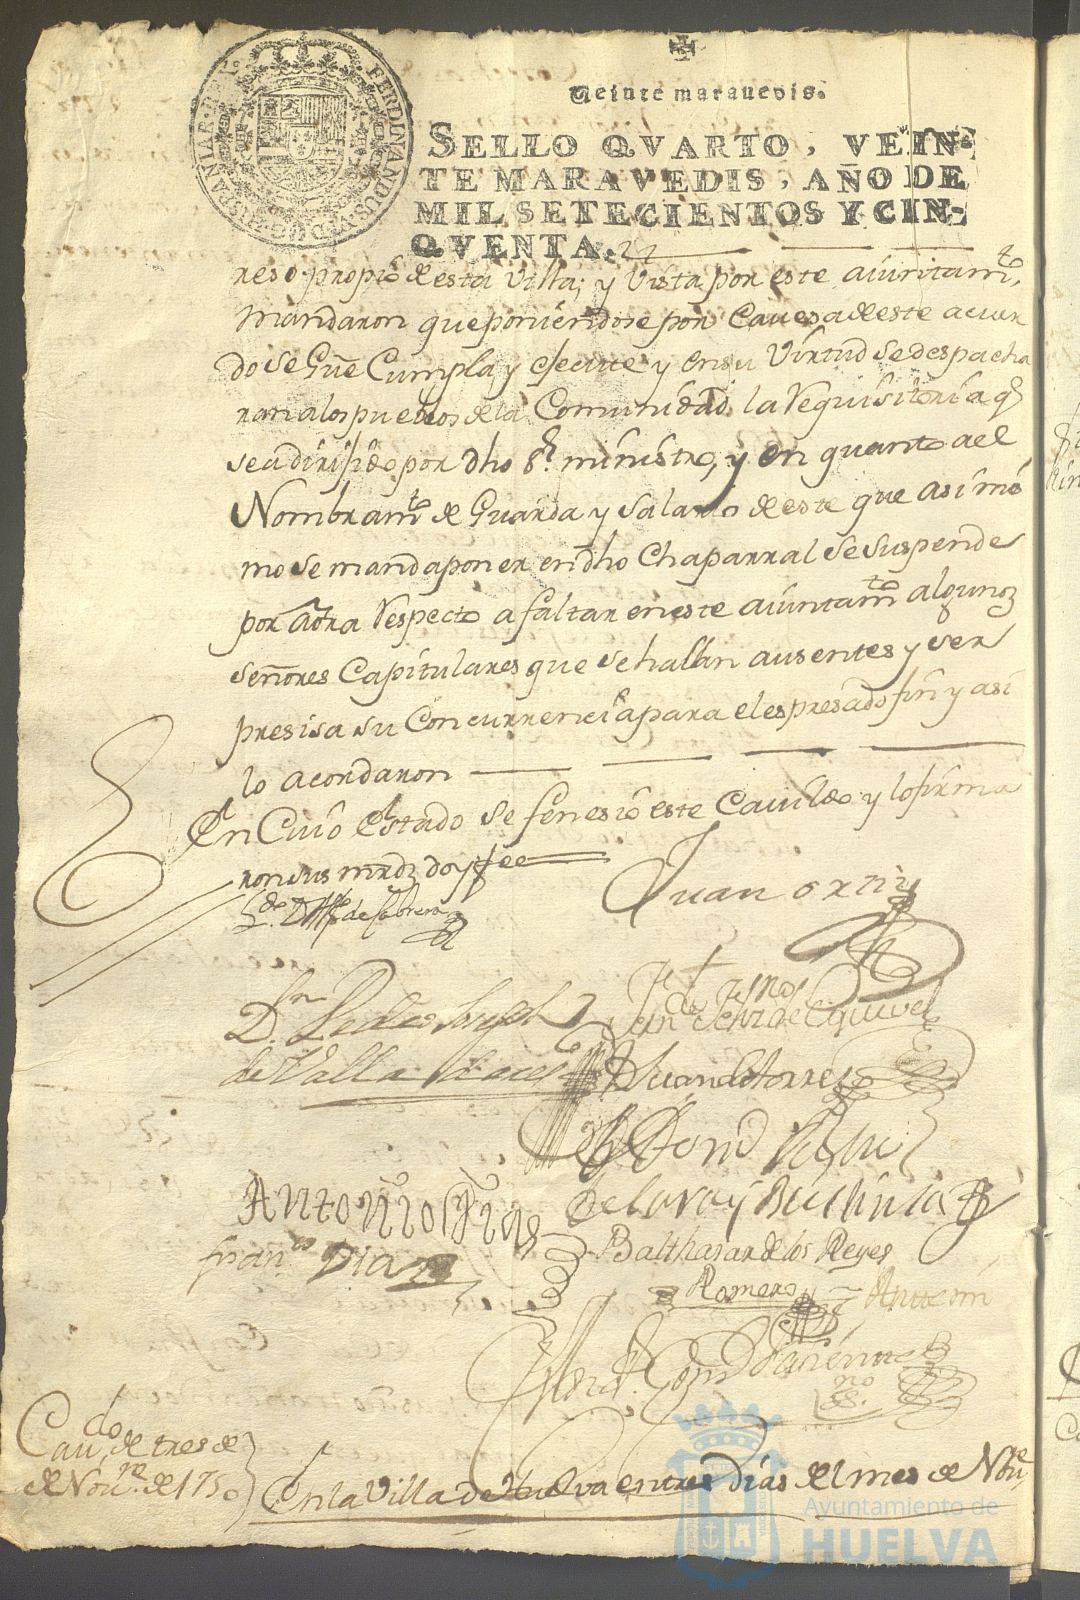 FERDINANDUS·VI·D·G·HISPANIAR·REX
Veinte maravedis.
SELLO QVARTO, VEIN-
TE MARAVEDIS, AÑO DE
MIL SETECIENTOS Y CIN-
QVENTA.
reso propiõ de esta Villa; y Vista por este aiuntamto,
Mandaron que poniendose por Cavesa de este acuer
do se Gue Cumpla y efecute y en su Virtud se despacha
ran a los pueblos de la Comunidad la Requisitoria q
sea dirijido por dho Sr. ministro, y en quanto a el
Nombramto de Guarda y Salario de este que asimis
mo se manda poner en dho Chaparral se suspende
por aora Respecto a faltar en este aiuntamto algunos
señores Capitulares que se hallan ausentes y ser
presisa su Concurrencia para el espresado fin y asi
lo acordaron
En Cuio Estado se fenesio este Cavildo y lo firma
ron sus mrds doy fee
Juan ortiz
Dn Pedro Joseph
de Valla
Esquivel
D Juan de torres
de la ra y
Antonio
Franco Diaz
Balthasar de los Reyes
Romero
Ante mi
Cavdo de tres de
de Nove. de 1750
En la Villa de Huelva en tres Dias del mes de Nove
Ayuntamiento de
HUELVA